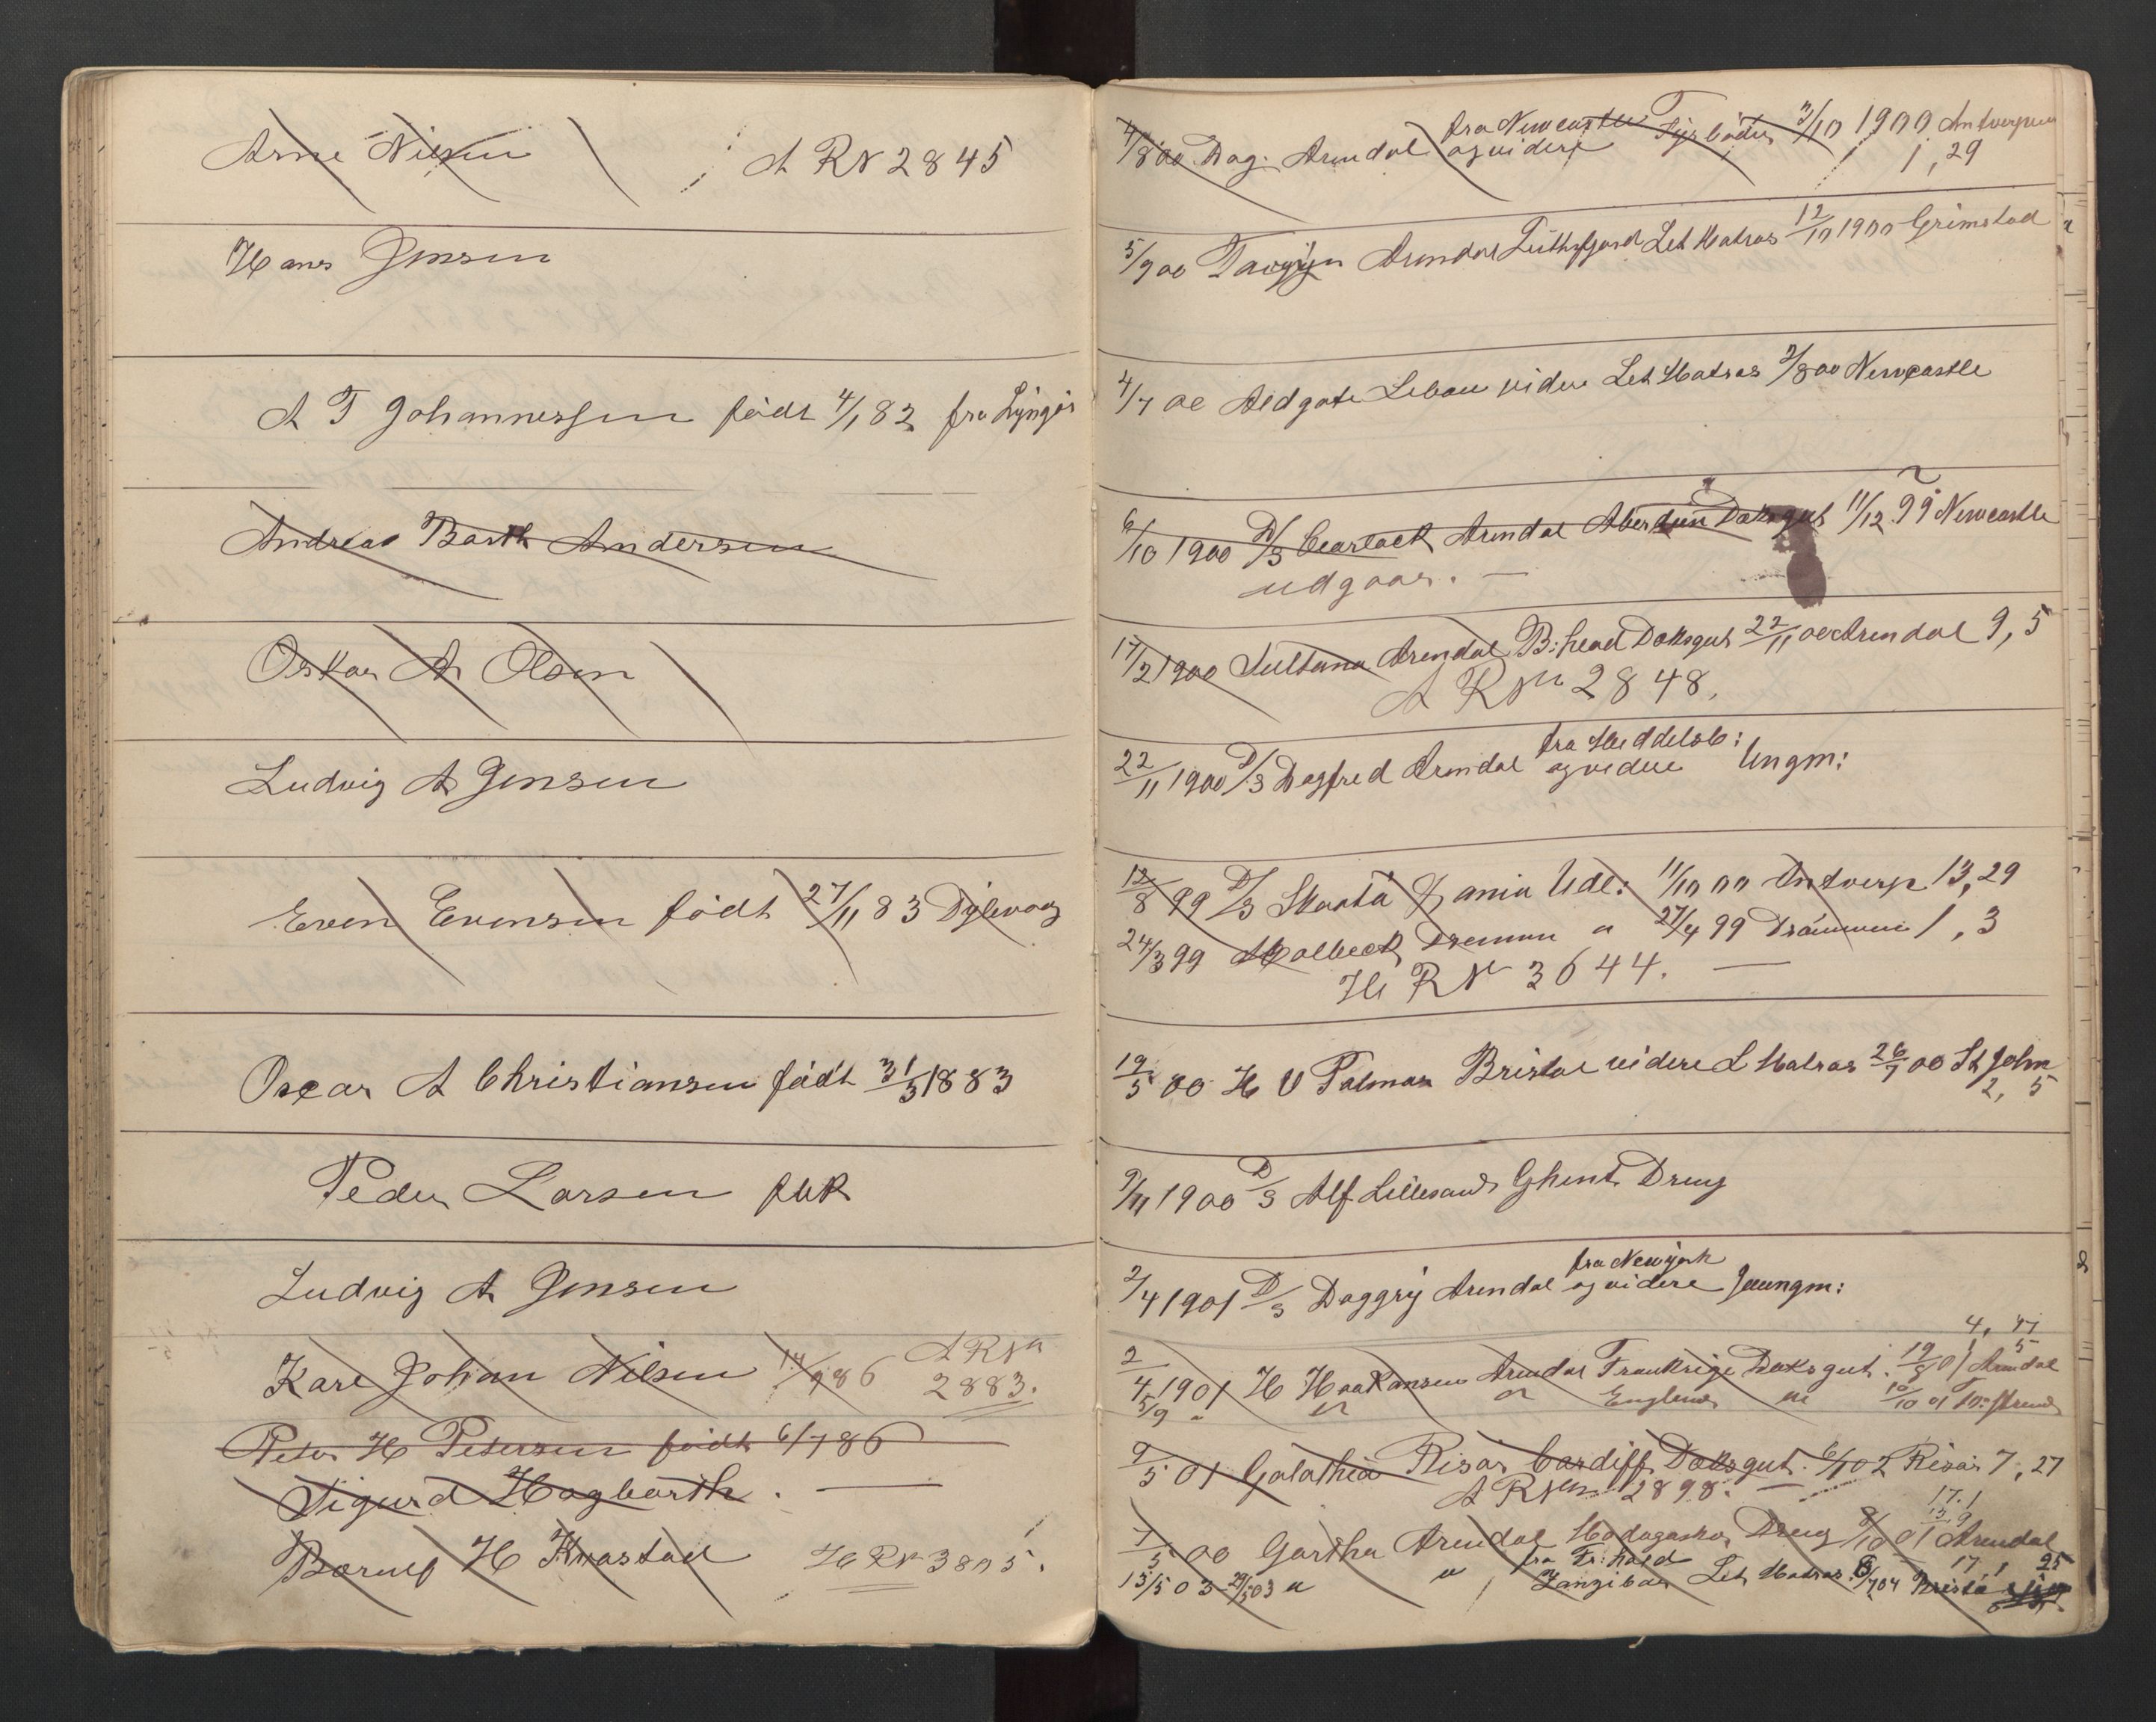 Arne Nilsen A RN 2845
Hans Jensen
A T Johannessen födt 4/1 82 fra Lyngör
Andreas Barth Andersen
Oskar A Olsen
Ludvig A Jensen
Even Evensen födt 27/11 83 Dybvaag
Oscar A Christiansen födt 31/3 1883
Peder Larsen
Ludvig A Jensen
Karl Johan Nilsen 14/9 86 A RNr
2883.
Peter H Petersen födt 6/7 86
Sigurd Hagbarth. —
H Knastad H RN 3805.
fra Newcastle
4/8 00 Dag. Arendal og videre Fyrböder 3/10 1900 Antverpen
1, 29
5/9 00 Arendal Let Matros 12/10 1900 Grimstad
4/7 00 Aldgate Libau videre Let Matros 2/8 00 Newcastle
6/10 1900 D/S Arendal Aberdeen Dæksgut 11/12 99 Newcastle
udgaar. —
17/12 1900 Sultana Arendal B:head Dæksgut 22/11 00 Arendal 9, 5
A RNr 2848.
fra Middelsb:
22/11 1900 D/S Dagfred Arendal og videre Ungm:
12/8 99 D/S Skaatö Udl: 11/10 00 Antverp 13, 29
24/3 99 Holbeck Dremmen " 27/4 99 Drammen 1, 3
H RN 3644. —
19/5 00 H V Palmar Bristol videre L Matros 26/7 00 St John
2, 5
9/11 1900 D/S Alf Lillesand Ghent Dreng
fra Newyork
2/4 1901 D/S Daggry Arendal og videre Jungm:
4, 
5
2/4 1901 H Haakansen Arendal Frankrige Dæksgut. 19/8 01 Arendal
5/9 " " " England " 10/10 01
9/5 01 Galathea Risör Cardiff Dæksgut. 6/1 02 Risör 7, 27
A RNr 2898. —
17. 1
13. 9
7/5 00 Gartha Arendal Madagaskar Dreng 8/10 01 Arendal
fra Fr:hald
17. 1 25
13/5 03 29/5 03 " " Zangibar Let Matros 6/7 04